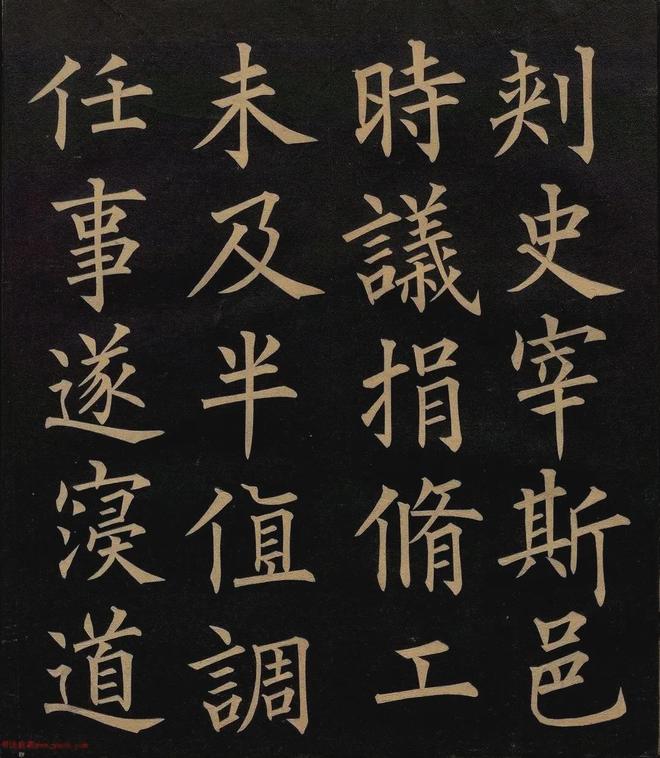 刾史宰斯邑
時議捐脩工
未及半值調
任事遂寢道